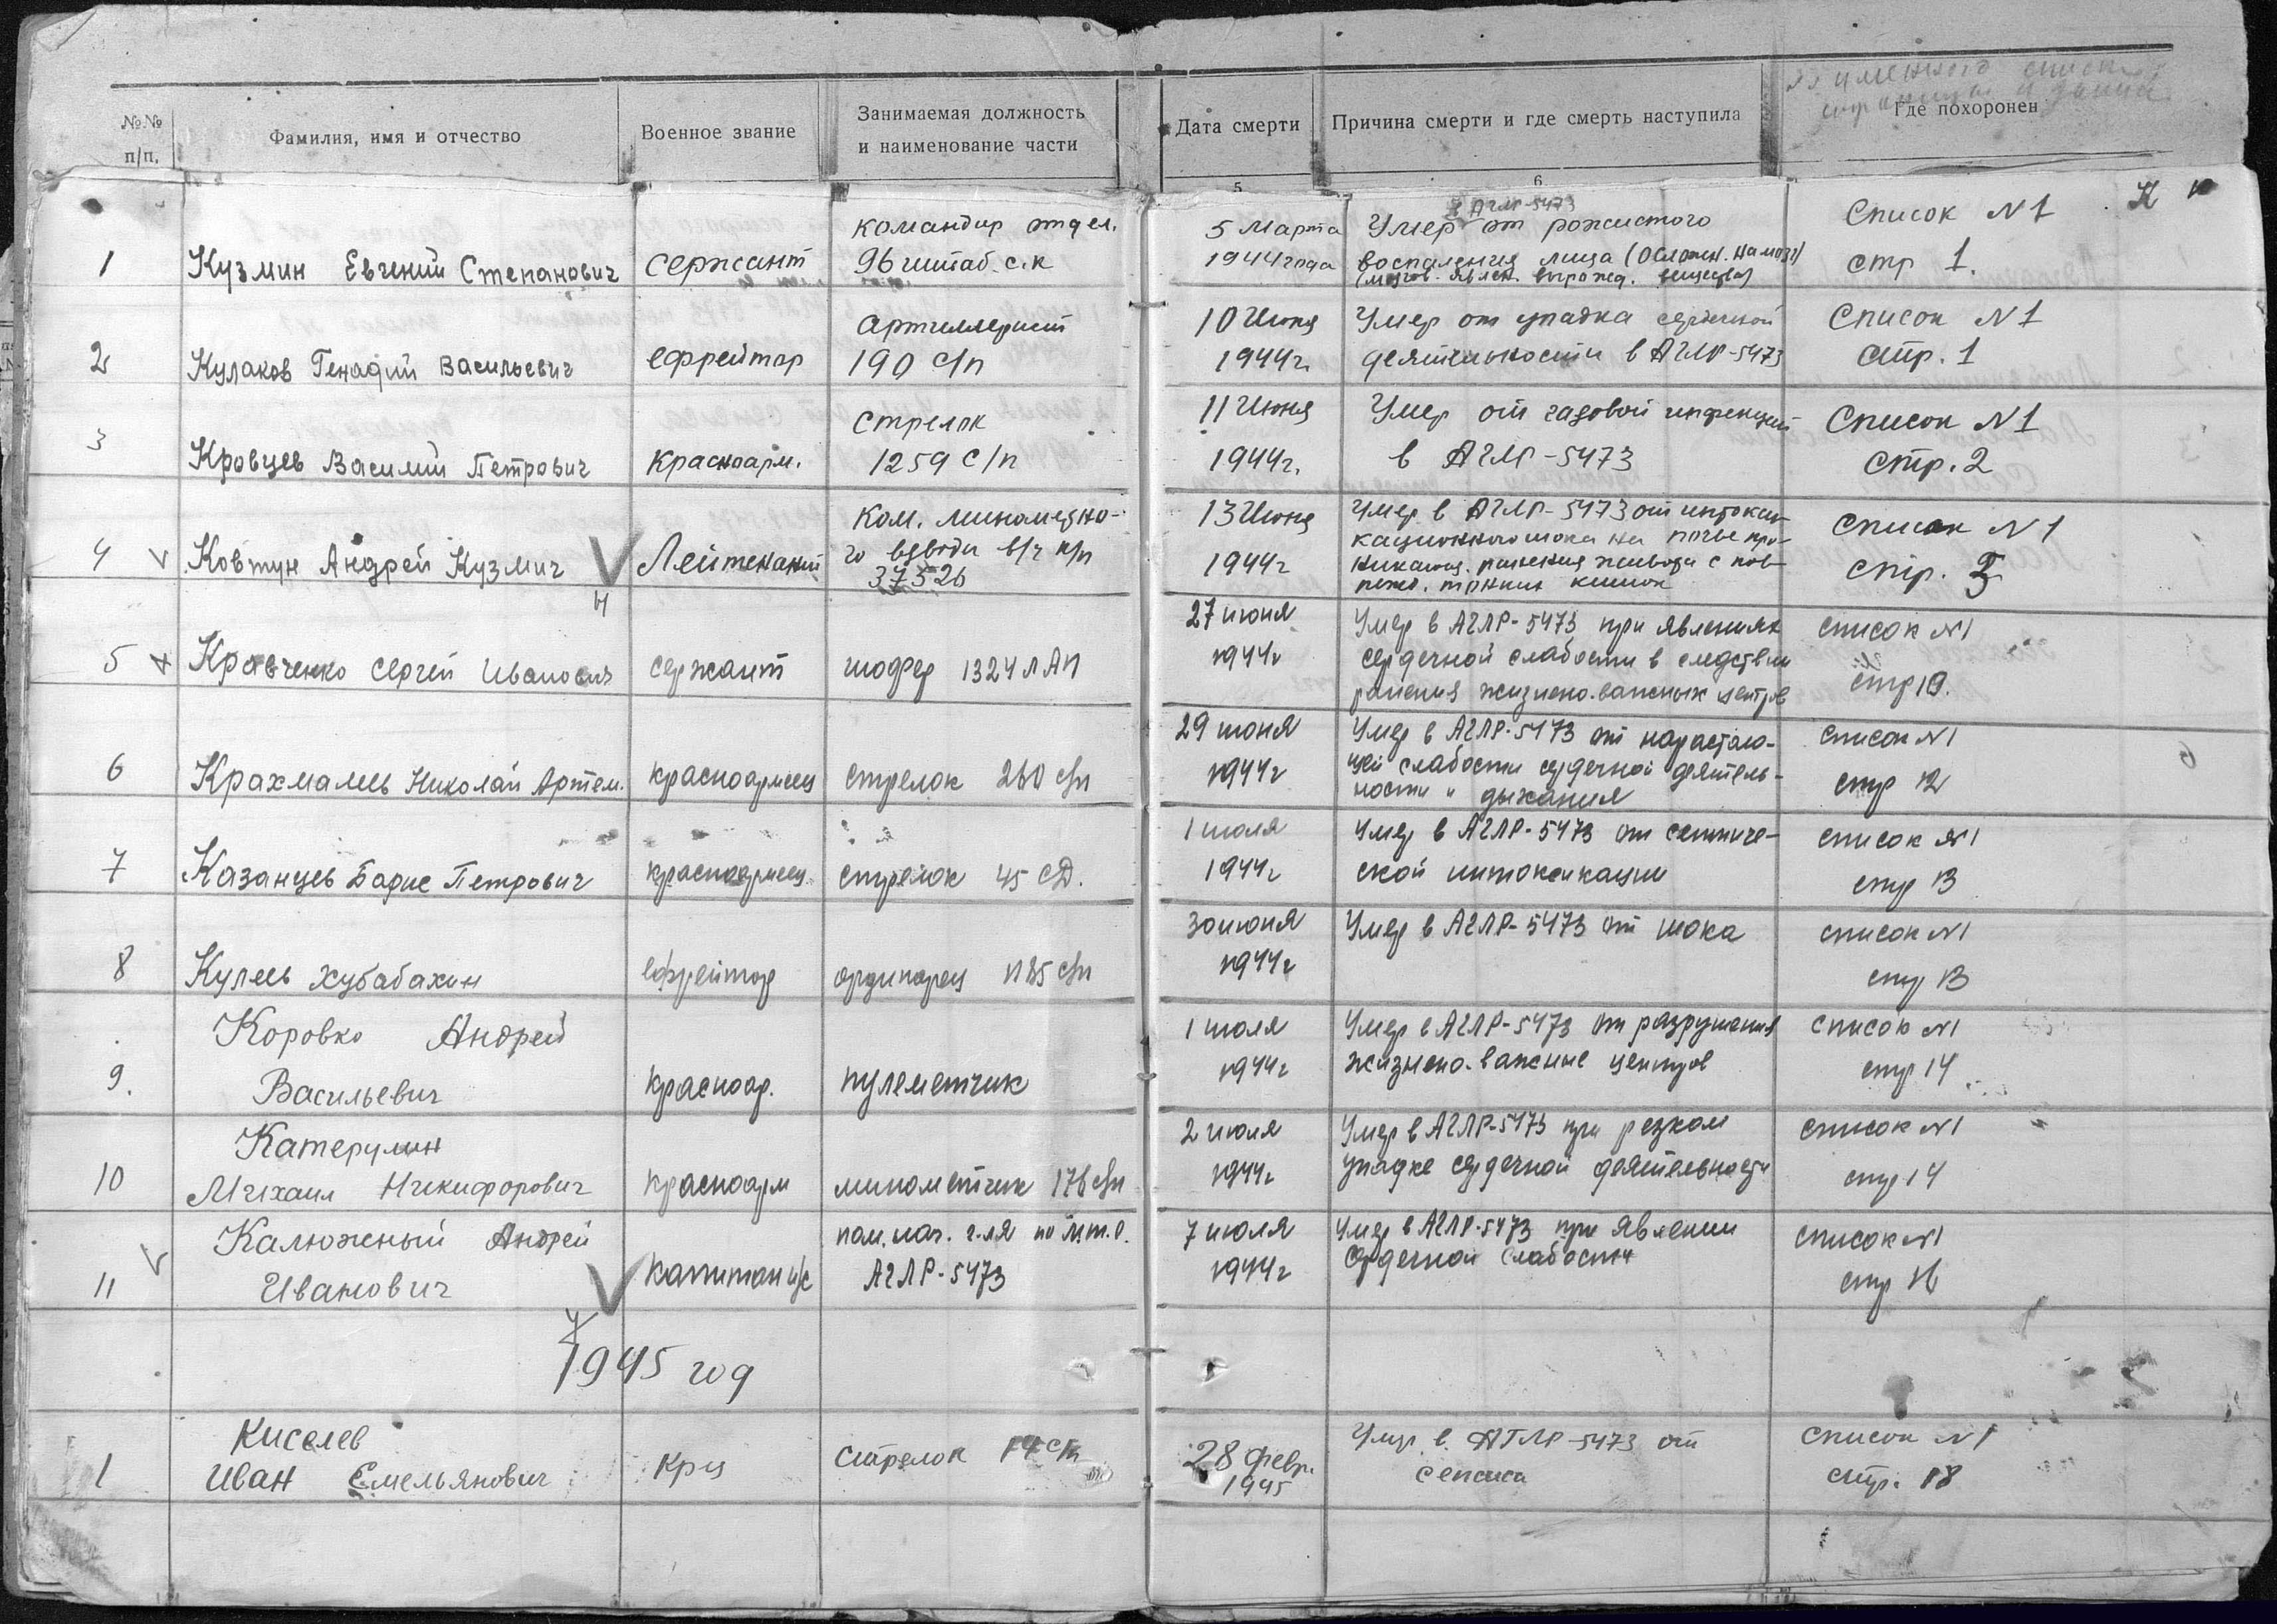 №№ п/п.
Фамилия, имя и отчество
Военное звание
Занимаемая должность
и наименование части
Дата смерти
Причина смерти и где смерть наступила
Где похоронен
5
6
К
1
Кузмин Евгений Степанович
сержант
командир отдел.
96 штаб. с.к
5 Марта
1944 года
в АГЛР-5473
Умер от рожистого
воспаления лица (Осложн. на мозг)
Список N1
стр 1.
2
Кулаков Генадий Васильевич
ефрейтор
Артиллерист
190 с/п
10 Июня
1944г.
Умер от упадка сердечной
деятельности в АГЛР-5473
Список N1
стр. 1
3
Кровцев Василий Петрович
Красноарм.
Стрелок
1259 с/п
11 Июня
1944г.
Умер от газовой инфекции
в АГЛР-5473
Список N1
стр. 2
4
Ковтун Андрей Кузмич
Лейтенант
Ком. минометно-
го взвода в/ч п/п
37526
13 Июня
1944г
Умер в АГЛР-5473 от интокси-
кационного шока на почве про-
никающ. ранения живота с пов-
режд. тонких кишок
Список N1
стр.
5
Кравченко Сергей Иванович
сержант
шофер 1324 ЛАП
27 июня
1944г
Умер в АГЛР-5473 при явлениях
сердечной слабости в следствии
ранения жизнено-важных центров
список N1
стр 10.
6
Крахмалев Николай Артем.
красноармеец
стрелок 260 с/п
29 июня
1944г
Умер в АГЛР-5473 от нарастаю-
щей слабости сердечной деятель-
ности и дыхания
список N1
стр 12
7
Казанцев Борис Петрович
красноармеец
стрелок 45 СД.
1 июля
1944г
Умер в АГЛР-5473 от септиче-
ской интоксикации
список N1
стр 13
8
Кулев Хубабахин
ефрейтор
ординарец 1185 с/п
30 июня
1944г
Умер в АГЛР-5473 от шока
список N1
стр 13
9.
Коровко Андрей
Васильевич
красноар.
пулеметчик
1 июля
1944г
Умер в АГЛР-5473 от разрушения
жизнено-важные центров
список N1
стр 14
10
Катерулин
Михаил Никифорович
красноарм
минометчик 176 с/п
2 июля
1944г
Умер в АГЛР-5473 при резком
упадке сердечной деятельности
список N1
стр 14
11
Калюжный Андрей
Иванович
капитан и/с
пом. нач. г-ля по М.т.о.
АГЛР-5473
7 июля
1944г
Умер в АГЛР-5473 при явлении
сердечной слабости
список N1
стр 16
1945 год
1
Киселев
Иван Емельянович
Кр-ц
стрелок
28 февр.
1945
Умер в АГЛР-5473 от
сепсиса
список N1
стр. 18